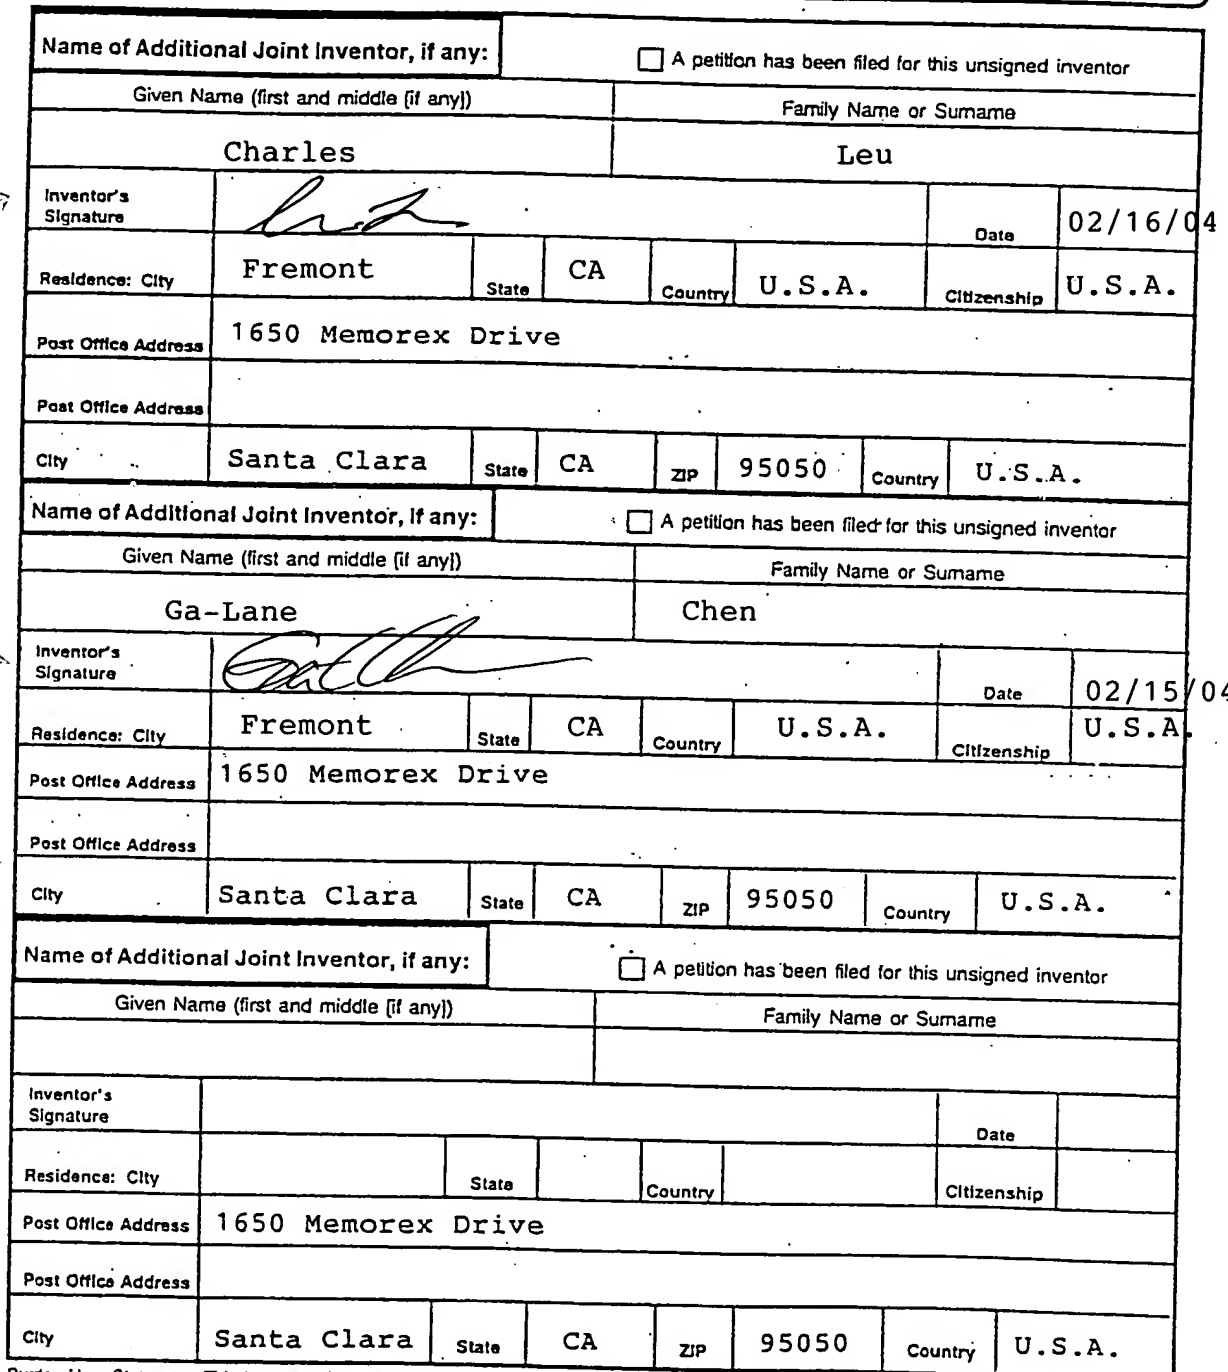 Name of Additional Joint Inventor, if any: A petition has been filed for this unsigned inventor
Given Name (first and middle [if any]) Family Name or Surname
Charles Leu
Inventor's Signature Date 02/16/04
Residence: City Fremont State CA Country U.S.A. Citizenship U.S.A.
Post Office Address 1650 Memorex Drive
Post Office Address
City Santa Clara State CA ZIP 95050 Country U.S.A.
Name of Additional Joint Inventor, if any: A petition has been filed for this unsigned inventor
Given Name (first and middle [if any]) Family Name or Surname
Ga-Lane Chen
Inventor's Signature Date 02/15/04
Residence: City Fremont State CA Country U.S.A. Citizenship U.S.A.
Post Office Address 1650 Memorex Drive
Post Office Address
City Santa Clara State CA ZIP 95050 Country U.S.A.
Name of Additional Joint Inventor, if any: A petition has been filed for this unsigned inventor
Given Name (first and middle [if any]) Family Name or Surname
Inventor's Signature Date
Residence: City State Country Citizenship
Post Office Address 1650 Memorex Drive
Post Office Address
City Santa Clara State CA ZIP 95050 Country U.S.A.